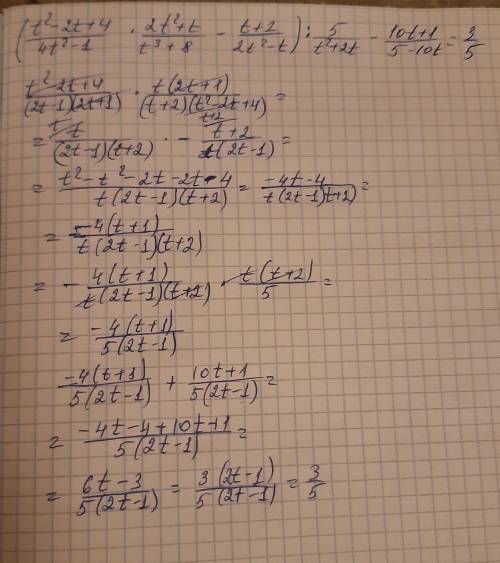 ((t²-2t+4)/(4t²-1) · (2t²+t)/(t³+8) - (t+2)/(2t²-t)) : 5/(t²+2t) - (10t+1)/(5-10t) = 3/5
(t²-2t+4)/((2t-1)(2t+1)) · t(2t+1)/((t+2)(t²-2t+4)) =
= t/((2t-1)(t+2)) · - (t+2)/(t(2t-1)) =
= (t²-t²-2t-2t-4)/(t(2t-1)(t+2)) = (-4t-4)/(t(2t-1)(t+2)) =
= -4(t+1)/(t(2t-1)(t+2))
= - 4(t+1)/(t(2t-1)(t+2)) · t(t+2)/5 =
= -4(t+1)/(5(2t-1))
-4(t+1)/(5(2t-1)) + (10t+1)/(5(2t-1)) =
= (-4t-4+10t+1)/(5(2t-1)) =
= (6t-3)/(5(2t-1)) = 3(2t-1)/(5(2t-1)) = 3/5